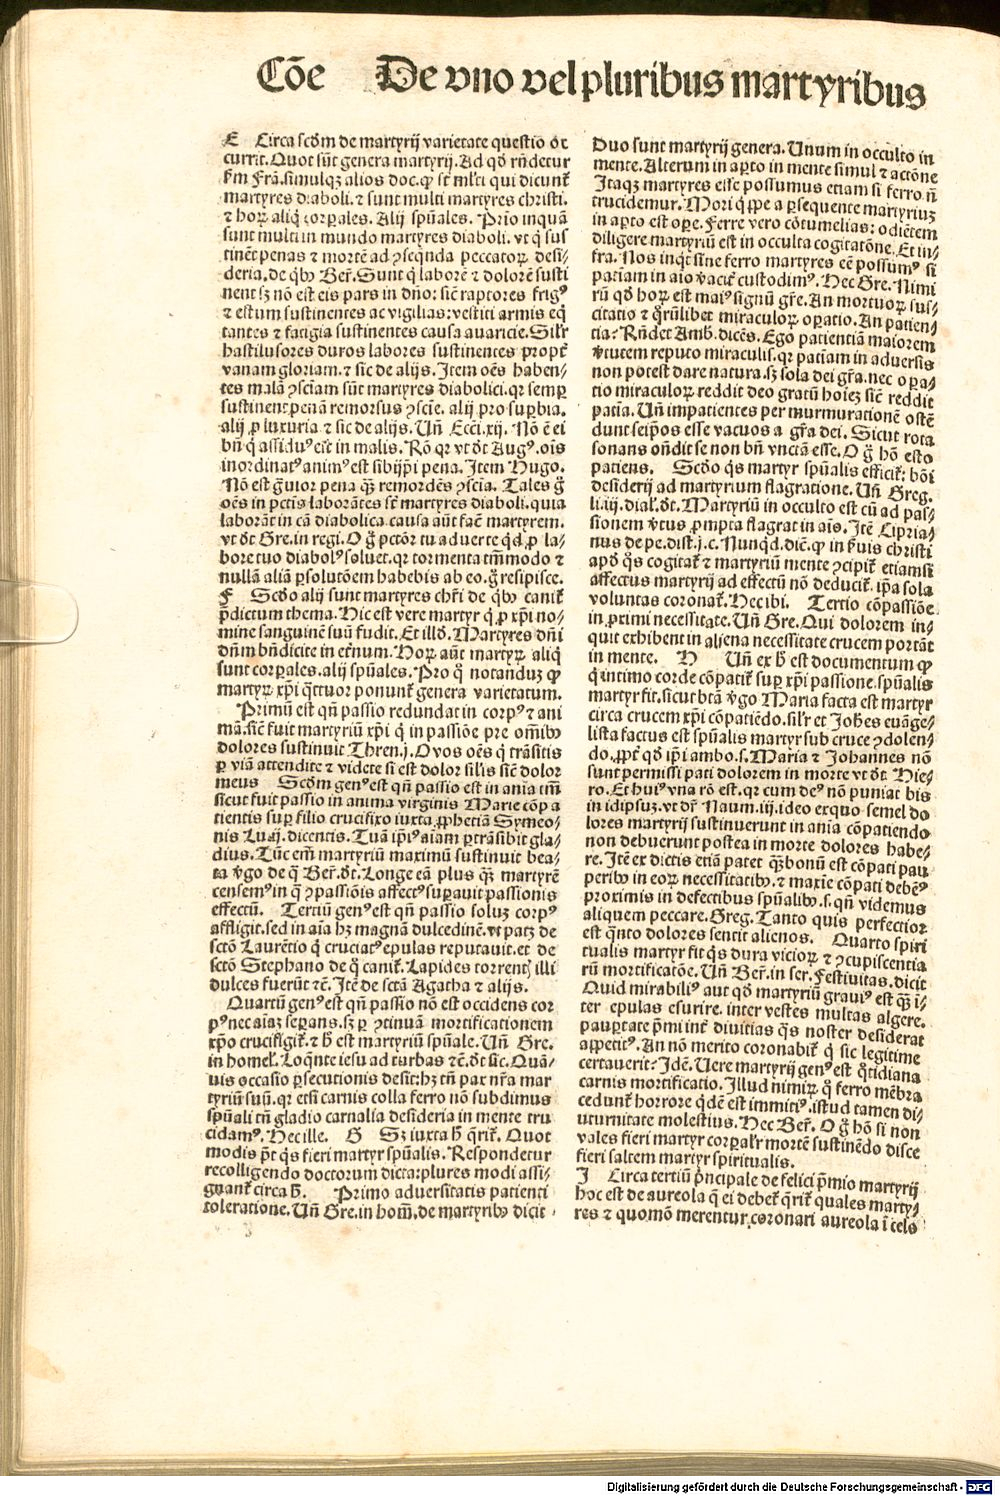 Cōe De vno vel pluribus martyribus
E Circa scdm de martyrij varietate questio oc
currit. Quot sūt genera martyrij. Ad qd rñdetur
fm Frā. simulqz alios doc. ꝙ st mlti qui dicunt
martyres diaboli. ⁊ sunt multi martyres christi.
⁊ hoꝝ aliq corpales. Alij spūales. Prio inquā
sunt multi in mundo martyres diaboli. vt q sus
tinēt penas ⁊ mortē ad ꝯseqnda peccatoꝝ desi⸗
deria. de qbꝰ Ber. Sunt q laborē ⁊ dolorē susti
nent sꝫ nō est eis pars in dño: sicut raptores frigꝰ
⁊ estum sustinentes ac vigilias: vestiti armis eq
tantes ⁊ fatigia sustinentes causa auaricie. Silr
hastilusores duros labores sustinentes propt
vanam gloriam. ⁊ sic de alijs. Item oēs haben⸗
tes malā ꝯsciam sūt martyres diabolici. qr semp
sustinent penā remorsus ꝯscie. alij pro supbia.
alij ꝓ luxuria ⁊ sic de alijs. Uñ Ecci. xij. Nō ē ei
bñ q assiduꝰ est in malis. Rō qr vt dt Augꝰ. oīs
inordinatꝰ animꝰ est sibijpi pena. Item Hugo.
Nō est grauior pena qꝫ remordēs ꝯscia. Tales g
oēs in pctis laborātes st martyres diaboli. quia
laborāt in cā diabolica. causa aūt fac martyrem.
vt dt Gre. in regi. O g pctor tu aduerte qd ꝓ la⸗
bore tuo diabolꝰ soluet. qr tormenta tmmodo ⁊
nullā aliā psolutōem habebis ab eo. g resipisce.
F Scdo alij sunt martyres chri de qbꝰ canit
pdictum thema. Hic est vere martyr q ꝓ xpi no⸗
mine sanguinē suū fudit. Et illd. Martyres dñi
dñm bñdicite in etnum. Hoꝝ aūt martyꝝ aliq
sunt corpales. alij spūales. Pro q notanduꝫ ꝙ
martyꝝ xpi qttuor ponunt genera varietatum.
Primū est qñ passio redundat in corpꝰ ⁊ ani
mā. sicut fuit martyriū xpi q in passiōe pre omībꝰ
dolores sustinuit Thren. j. O vos oēs q trāsitis
per viā attendite ⁊ videte si est dolor silis sicut dolor
meus Scdm genꝰ est qñ passio est in aīa tm
sicut fuit passio in anima virginis Marie cōpa
tientis sup filio crucifixo iuxta ꝓphetiā Symeo⸗
nis Lu. ij. dicentis. Tuā ipiꝰ aīam ptrāsibit gla⸗
dius. Tūc em martyriū maximū sustinuit bea⸗
ta vgo de q Ber. dt. Longe eā plus qꝫ martyrē
censemꝰ in q ꝯpassiōis affectꝰ supauit passionis
effectū. Tertiū genꝰ est qñ passio soluꝫ corpꝰ
affligit. sed in aīa hꝫ magnā dulcedinē. vt patꝫ de
sctō Laurētio q cruciatꝰ epulas reputauit. et de
sctō Stephano de q canit. Lapides torrentꝫ illi
dulces fuerūt ⁊c. Itē de sctā Agatha ⁊ alijs.
Quartū genꝰ est qñ passio nō est occidens cor
pꝰ nec aīaꝫ sepans. sꝫ per ꝯtinuā mortificationem
xpo crucifigit. ⁊ h est martyriū spūale. Uñ Gre.
in homel. Loqnte iesu ad turbas ⁊c. dt sic. Quā⸗
uis occasio psecutionis desit: hꝫ tñ pax nra mar
tyriū suū. qr etsi carnis colla ferro nō subdimus
spūali tñ gladio carnalia desideria in mente tru
cidamꝰ. Hec ille. G Sꝫ iuxta h qrit. Quot
modis pt qs fieri martyr spūalis. Respondetur
recolligendo doctorum dicta: plures modi assi⸗
gnant circa h. Primo aduersitatis patienti
toleratione. Uñ Gre. in hom. de martyribꝰ dicit
Duo sunt martyrij genera. Unum in occulto in
mente. Alterum in apto in mente simul ⁊ actōne
Itaqꝫ martyres esse possumus etiam si ferro nō
trucidemur. Mori qppe a psequente martyriuꝫ
in apto est ope. Ferre vero cōtumelias: odiētem
diligere martyriū est in occulta cogitatōne. Et in⸗
fra. Nos inqt sine ferro martyres eē possumꝰ si
patiam in aīo vacit custodimꝰ. Hec Gre. Nimi
rū qd hoꝝ est maiꝰ signū gre. An mortuoꝝ sus⸗
citatio ⁊ qrūlibet miraculoꝝ opatio. An patien⸗
tia? Rñdet Amb. dicēs. Ego patientiā maiorem
vtutem reputo miraculis. qr patiam in aduersis
non potest dare natura. sꝫ sola dei gra. nec opa⸗
tio miraculoꝝ reddit deo gratū hoīeꝫ sicut reddit
patīa. Uñ impatientes per murmurationē ostē
dunt seipos esse vacuos a gra dei. Sicut rota
sonans oñdit se non bñ vnctā esse. O g hō esto
patiens. Scdo qs martyr spūalis efficit: bōi
desiderij ad martyrium flagratione. Uñ Greg.
li. iij. dial. dt. Martyriū in occulto est cū ad pas⸗
sionem vtus prompta flagrat in aīs. Itē Cipria⸗
nus de pe. dist. j. c. Nunqd. dic. ꝙ in huis christi
apd qs cogitat ⁊ martyriū mente ꝯcipit etiamsi
affectus martyrij ad effectū nō deducit. ipa sola
voluntas coronat. Hec ibi. Tertio cōpassiōe
in primi necessitate. Uñ Gre. Qui dolorem in⸗
quit exhibent in aliena necessitate crucem portāt
in mente. H Uñ ex h est documentum ꝙ
q intimo corde cōpatit sup xpi passione spūalis
martyr fit. sicut btā vgo Maria facta est martyr
circa crucem xpi cōpatiēdo. silr et Johes euāge⸗
lista factus est spūalis martyr sub cruce ꝯdolen⸗
do. ꝓpt qd ipi ambo. s. Maria ⁊ Johannes nō
sunt permissi pati dolorem in morte vt dt Hie⸗
ro. Et huiꝰ vna rō est. qr cum deꝰ nō puniat bis
in idipsuꝫ. vt dr Naum. iij. ideo exquo semel do
lores martyrij sustinuerunt in aīa cōpatiendo
non debuerunt postea in morte dolores habe⸗
re. Itē ex dictis etiā patet qꝫ bonū est cōpati pau
peribꝰ in eoꝝ necessitatibꝰ. ⁊ maxie cōpati debēꝰ
proximis in defectibus spūalibꝰ. s. qñ videmus
aliquem peccare. Greg. Tanto quis perfectior
est qnto dolores sentit alienos. Quarto spiri
tualis martyr fit qs dura vicioꝝ ⁊ ꝯcupiscentia
rū mortificatōe. Uñ Ber. in ser. Festiuitas. dicit
Quid mirabiliꝰ aut qd martyriū grauiꝰ est qꝫ i⸗
ter epulas esurire. inter vestes multas algere.
paupertate pmi int diuitias qs noster desiderat
appetitꝰ. An nō merito coronabit q sic legitime
certauerit? Idē. Uere martyrij genꝰ est qtidiana
carnis mortificatio. Illud nimiꝝ q ferro mēbra
cedunt horrore qdē est immitiꝰ. istud tamen di⸗
uturnitate molestius. Hec Ber. O g hō si non
vales fieri martyr corpalr mortē sustinēdo disce
fieri saltem martyr spiritualis.
J Circa tertiū pncipale de felici pmio martyrij
hoc est de aureola q ei debet qrit quales marty⸗
res ⁊ quomō merentur coronari aureola ī celo
Digitalisierung gefördert durch die Deutsche Forschungsgemeinschaft - DFG